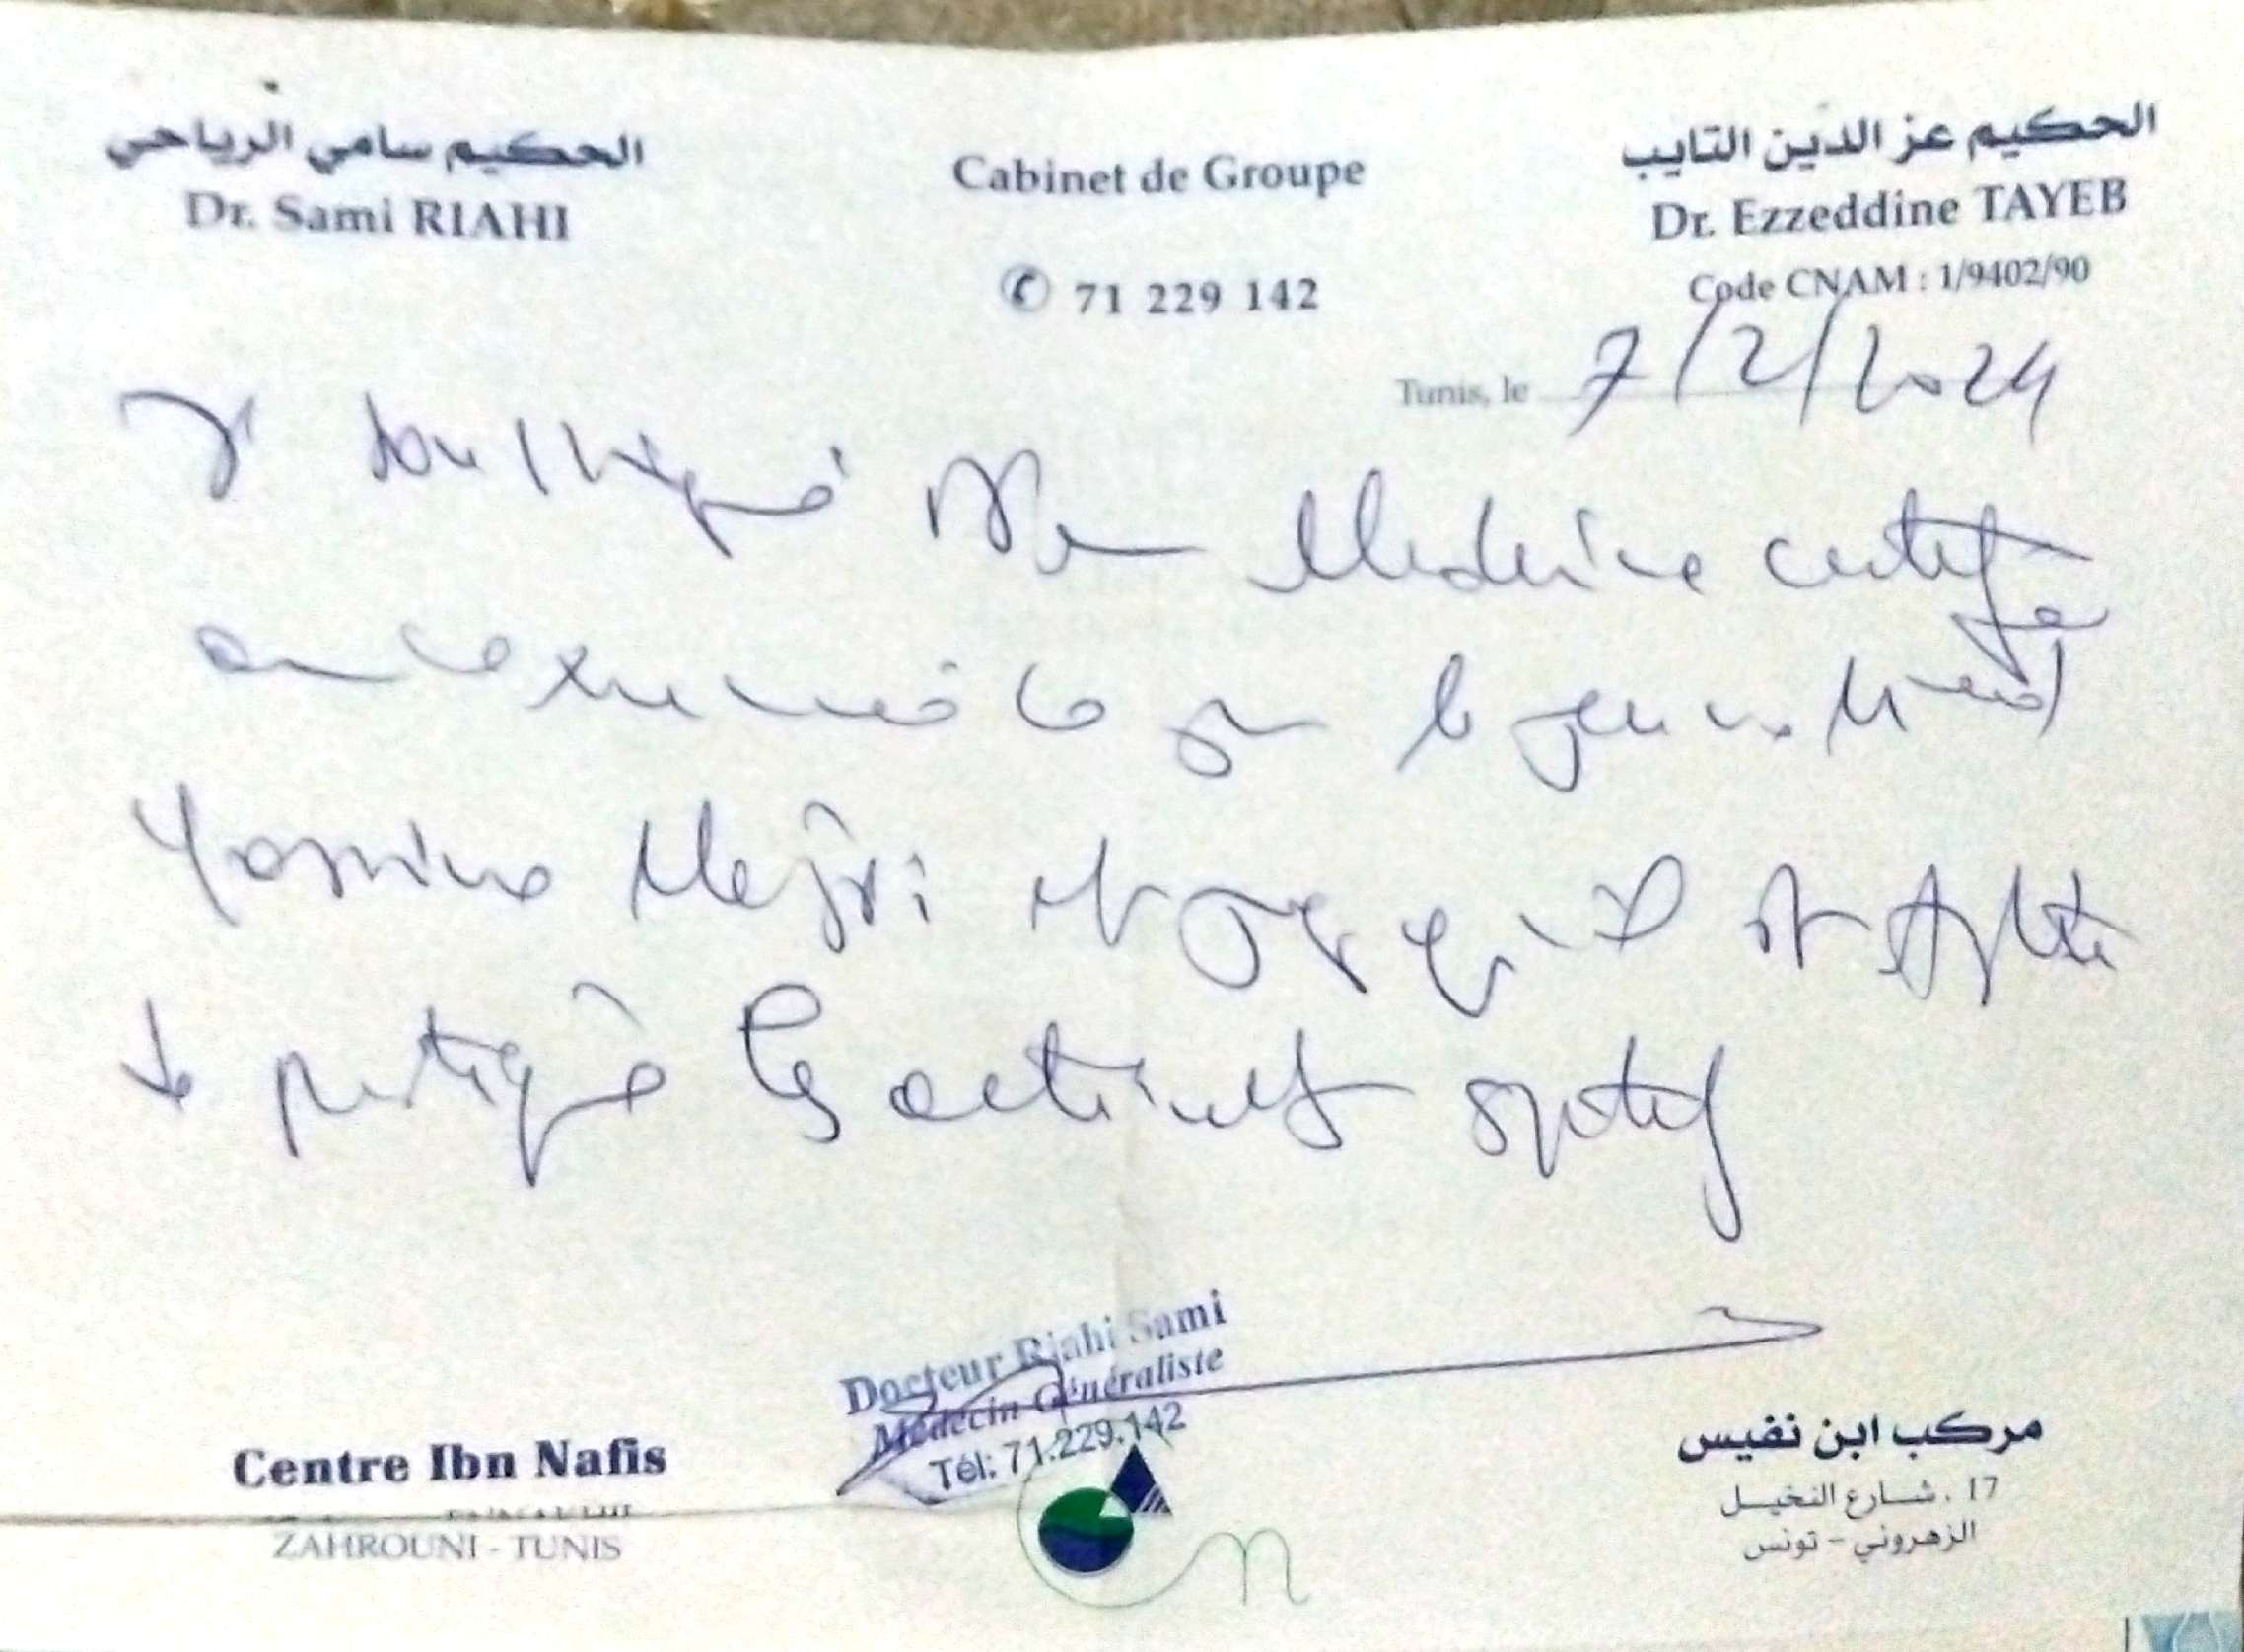 الحكيم سامي الرياحي
Dr. Sami RIAHI
Cabinet de Groupe
✆ 71 229 142
الحكيم عز الدين التايب
Dr. Ezzeddine TAYEB
Code CNAM : 1/9402/90
Tunis, le 7/2/2024
Je soussigné Médecine certifie
examiné ce jour le jeune
Yassine Mejri et qu'il est apte
de pratiquer les activités sportif
Docteur Riahi Sami
Médecin Généraliste
Tél: 71.229.142
Centre Ibn Nafis
ZAHROUNI - TUNIS
مركب ابن نفيس
17 ، شارع النخيل
الزهروني - تونس